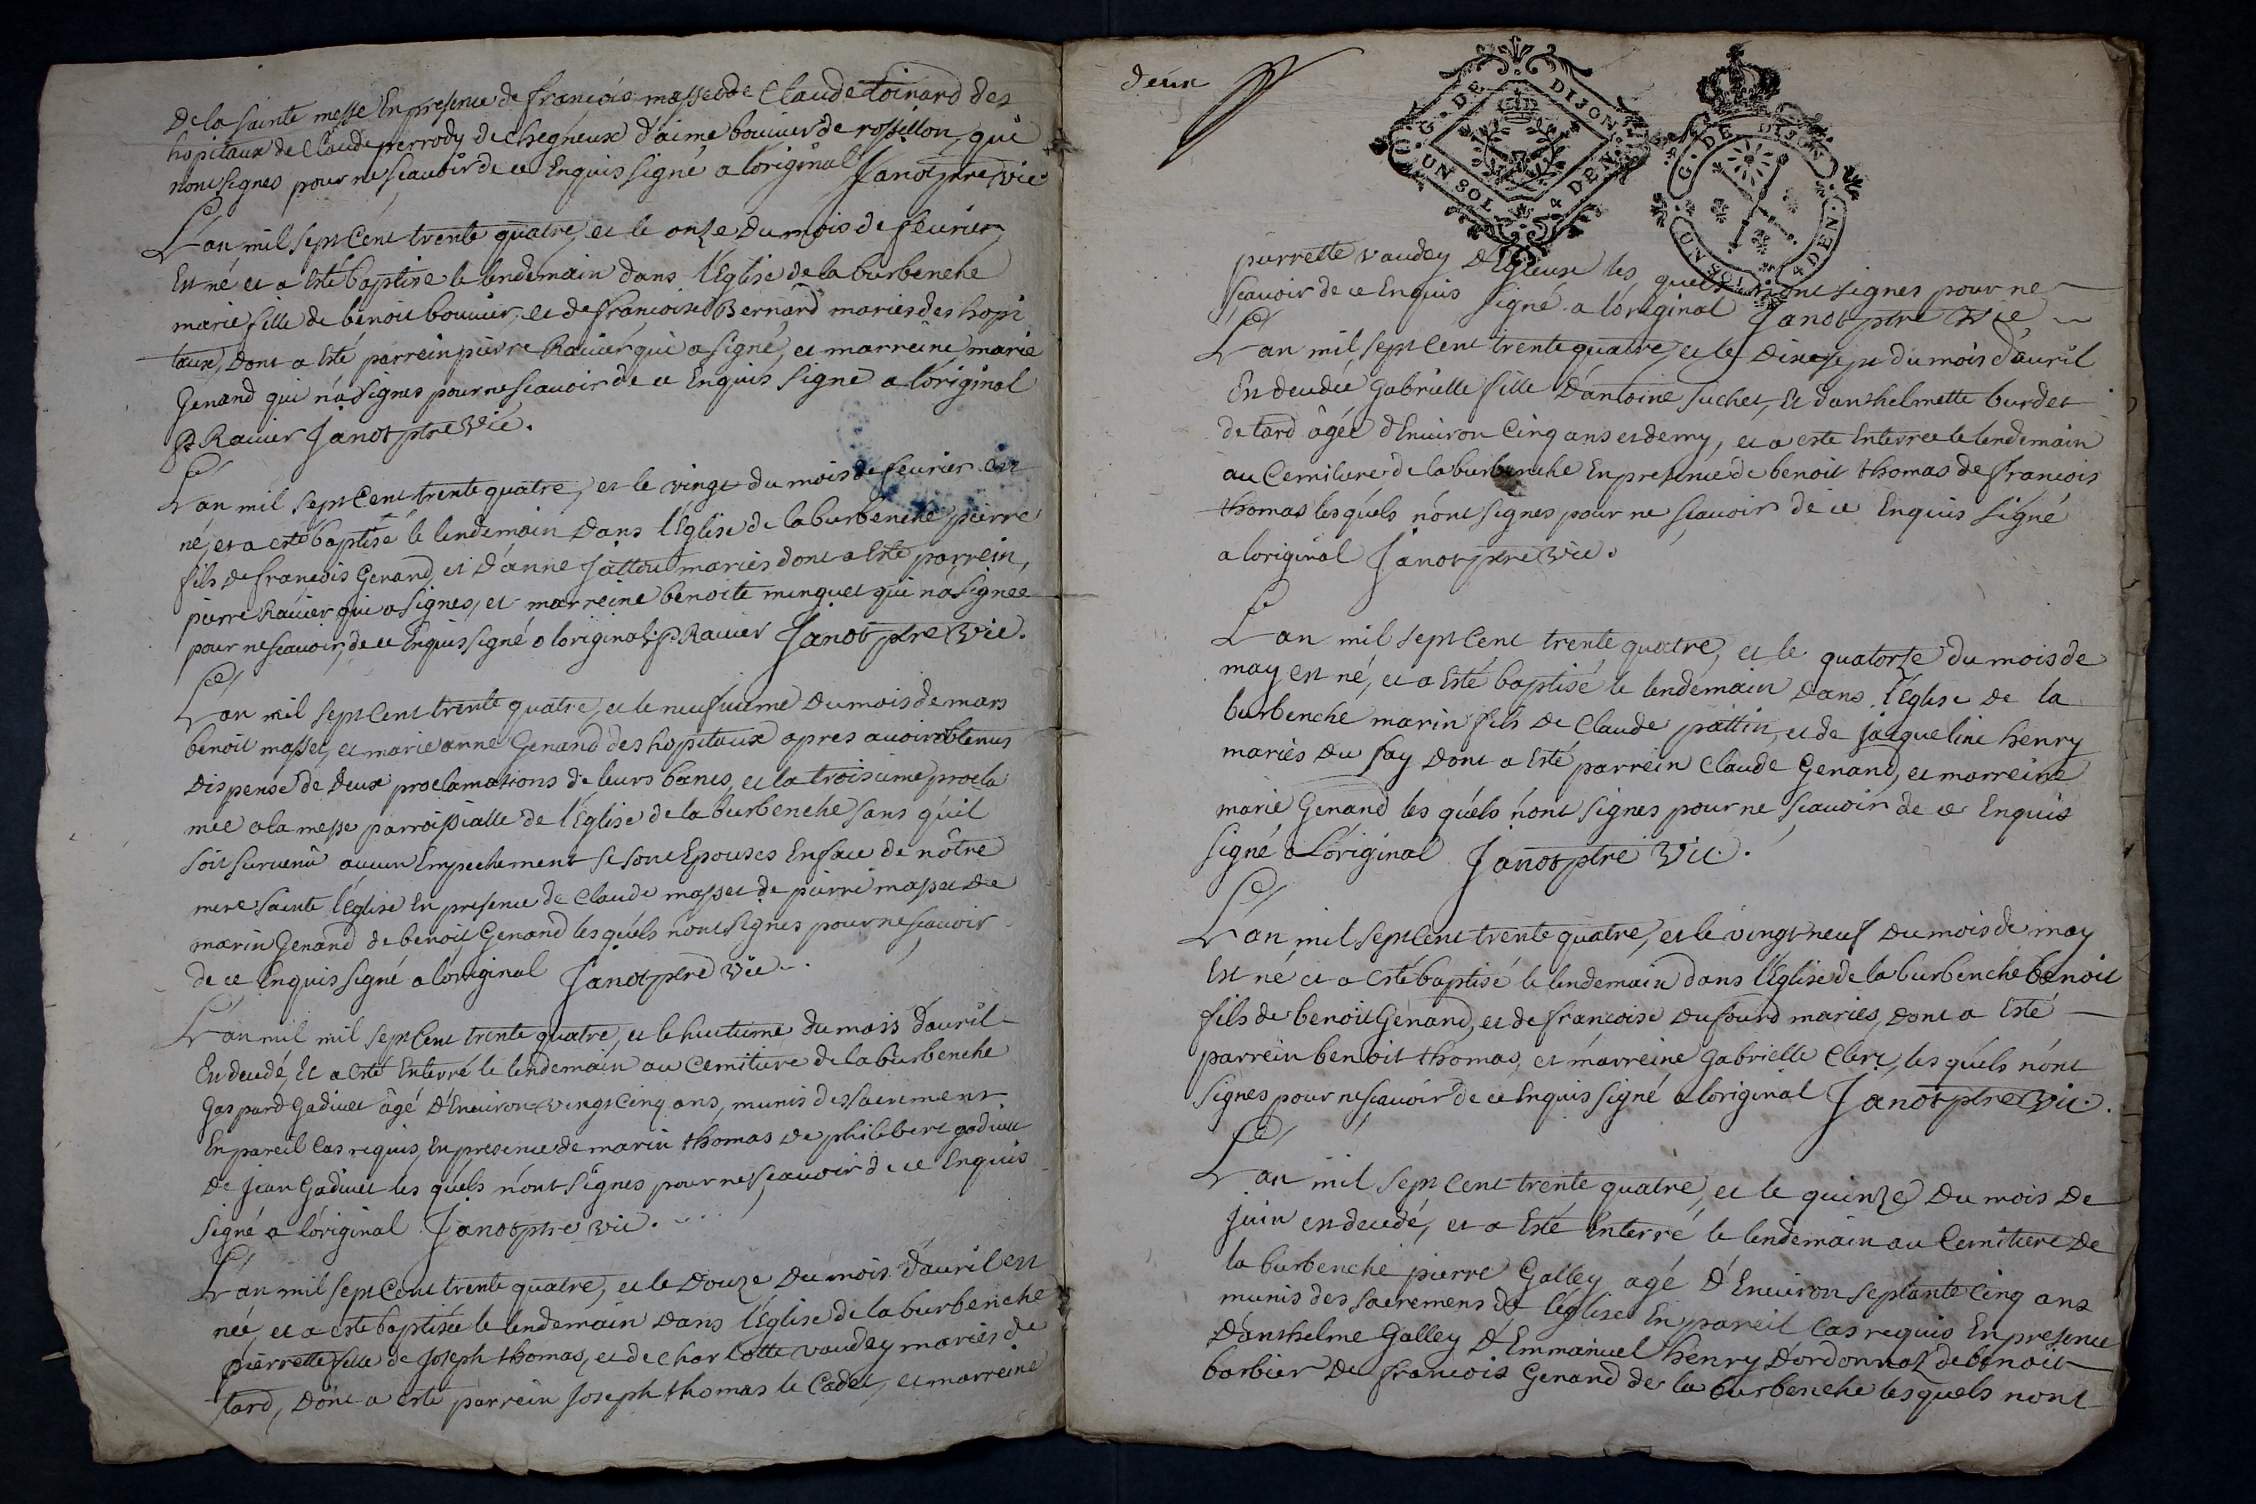 De la sainte messe En presence de francois masset de Claude toinard des
hopitaux de Claude perrody de Chegneux d'aime bouuier de rossillon, qui
nont signes pour ne scauoir de ce Enquis signé a l'original Janot ptre vic
L'an mil sept Cent trente quatre, et le onze du mois de feurier
Est né et a Esté baptise le lendemain dans l'Eglise de la burbenche
marie fille de benoit bouuier, et de francoise Bernard mariés des hopi
taux, dont a Esté parrein pierre Rauier qui a signé, et marreine marie
Genand qui n'a signes pour ne scauoir de ce Enquis signe a l'original
P Rauier Janot ptre Vic.
L'an mil sept Cent trente quatre, et le vingt du mois de feurier est
né, et a esté baptisé le lendemain dans l'Eglise de la burbenche pierre
fils de francois Genand, et d'anne Jattou mariés dont a Esté parrein,
pierre Rauier qui a signes, et marreine benoite minguet qui n'a signée
pour ne scauoir, de ce Enquis signé a l'original P Rauier Janot ptre Vic.
L'an mil sept Cent trente quatre, et le neufuieme du mois de mars
benoit masset, et marie anne Genand des hopitaux apres auoir obtenus
dispense de deux proclamations de leurs bancs, et la troisieme procla
mée a la messe parroissialle de l'Eglise de la burbenche sans qu'il
soit suruenû aucun Empechement se sont Epousés En face de nôtre
mere sainte l'Eglise En presence de Claude masset de pierre masset de
marin Genand de benoit Genand les quels n'ont signes pour ne scauoir
de ce Enquis signé a l'original Janot ptre Vic.
L'an mil mil sept Cent trente quatre, et le huitieme du mois d'auril
Est decedé, Et a esté Enterré le lendemain au Cemitiere de la burbenche
Gaspard Gadiuet âgé d'Enuiron vingt cinq ans, munis des sacrement
En pareil Cas requis, En presence de marin thomas de philibert gadiuet
de Jean Gadiuet les quels n'ont signes pour ne scauoir de ce Enquis
signé a l'original Janot ptre vic.
L'an mil sept Cent trente quatre, et le Douze du mois d'auril est
née, et a esté baptisée le lendemain dans l'Eglise de la burbenche
pierrette fille de Joseph thomas, et de Charlotte vaudey mariés de
tard, Dont a esté parrein Joseph thomas le Cadet, et marreine
deux
G. DE DIJON
UN SOL 4 DEN.
G. DE DIJON
UN SOL 4 DEN.
pierrette vaudey les quels n'ont signes pour ne
scauoir de ce Enquis signé a l'original Janot ptre Vic
L'an mil sept Cent trente quatre, et le Dixsept du mois d'auril
Est decedée Gabrielle fille D'antoine suchet, Et d'anthelmette burdet
de tard âgée d'Enuiron Cinq ans et demy, et a esté Enterrée le lendemain
au Cemitiere de la burbenche En presence de benoit thomas de francois
thomas les quels n'ont signes pour ne scauoir de ce Enquis signé
a l'original Janot ptre Vic.
L'an mil sept Cent trente quatre, et le quatorze du mois de
may est né, et a Esté baptisé le lendemain dans l'église de la
burbenche marin fils de Claude pattin, et de jacqueline henry
mariés du fay dont a Esté parrein Claude Genand, et marreine
marie Genand les quels n'ont signes pour ne scauoir de ce Enquis
signé a L'original Janot ptre Vic.
L'an mil sept Cent trente quatre, et le vingt neuf du mois de may
Est né et a esté baptisé le lendemain dans l'Eglise de la burbenche benoit
fils de benoit Genand, et de francoise Dufourd mariés, dont a Esté
parrein benoit thomas, et marreine Gabrielle Clerc, les quels n'ont
signes pour ne scauoir de ce Enquis signé a l'original Janot ptre Vic.
L'an mil sept Cent trente quatre, et le quinze du mois de
juin est decedé, et a Esté Enterré le lendemain au Cemitiere de
la burbenche pierre Galley agé d'Enuiron septante Cinq ans
munis des sacremens de l'église En pareil Cas requis En presence
D'anthelme Galley D'Emmanuel henry d'ordonnaz de benoit
barbier de francois Genand de la burbenche les quels n'ont